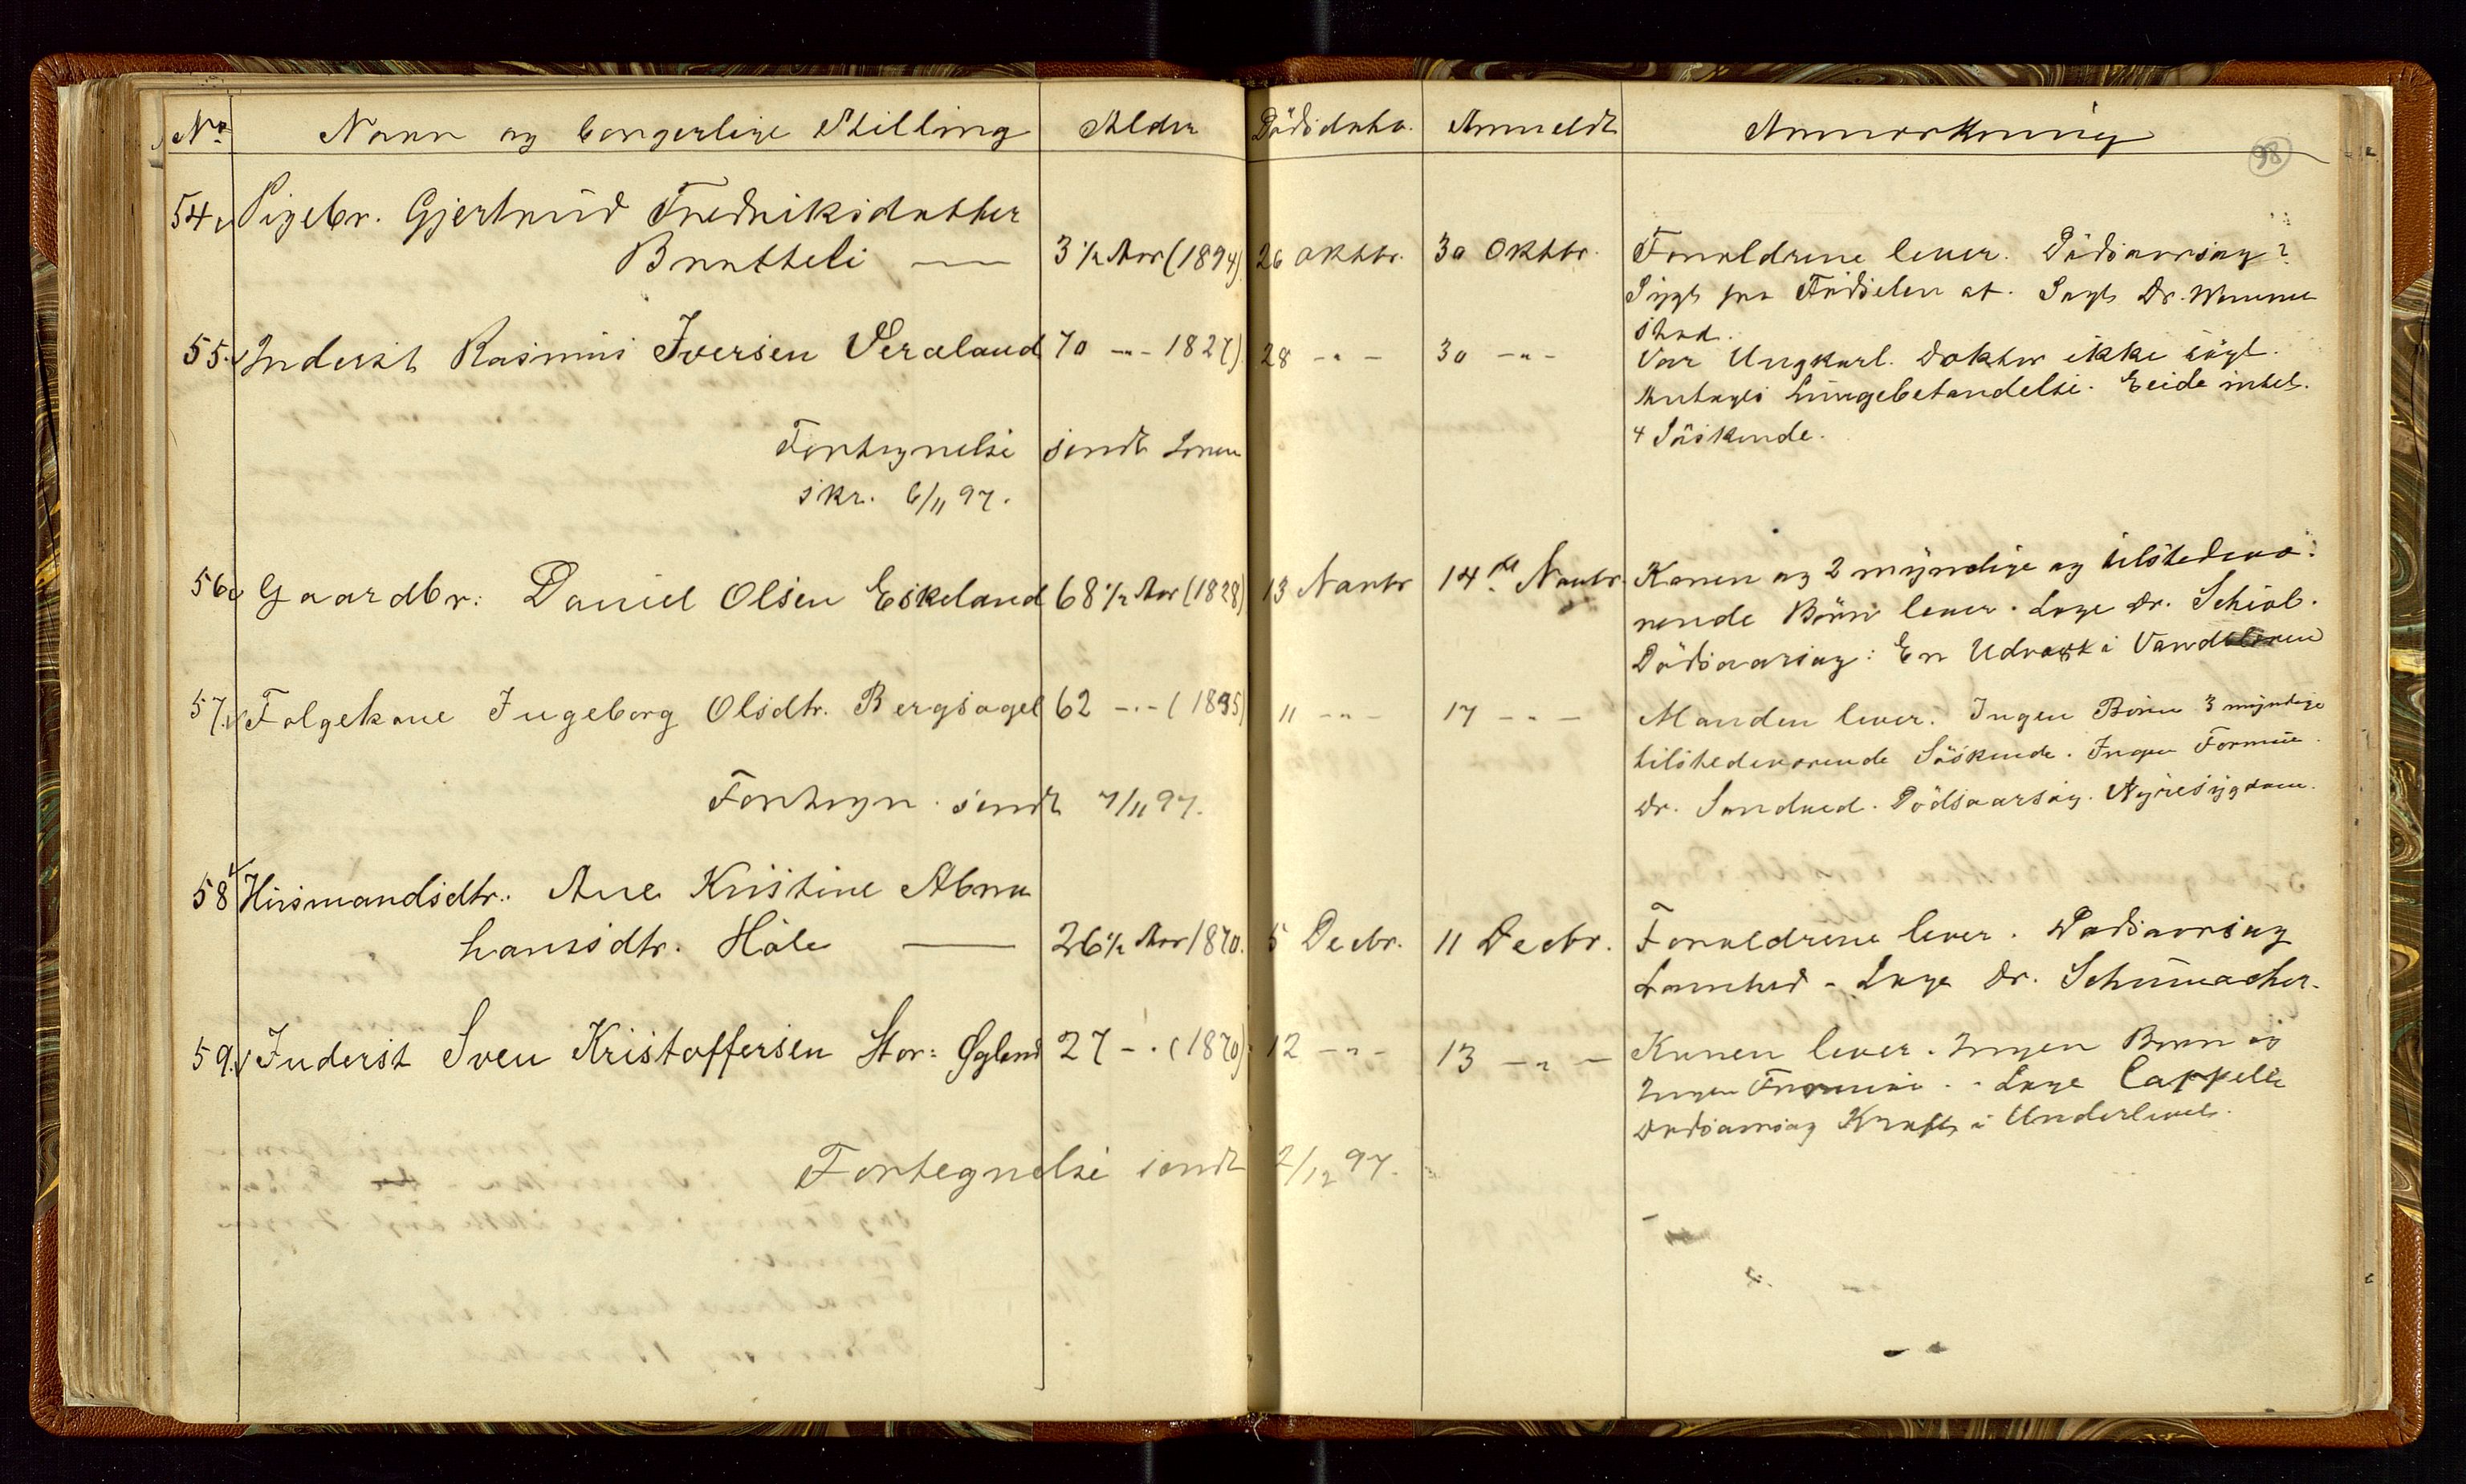 No Navn og borgerlige Stilling Alder Dödsdato. Anmeldt Anmærkning
98
54 Pigebr. Gjertrud Fredriksdatter
Bratteli — 3 1/2 Aar (1894) 26 Oktbr. 30 Oktbr. Forældrene lever. Dödsaarsag?
Sygt fra Födselen af. Sögt Dr. Wenne
stad.
55. Inderst Rasmus Iversen Veraland 70 -"- 1827) 28 -"- 30 -"- Var Ungkarl. Doktor ikke sögt.
Antages Lungebetændelse. Eiede intet.
4 Söskende.
Fortegnelse sendt Soren
skr. 6/11 97.
56 Gaardbr: Daniel Olsen Eskeland 68 1/2 Aar (1828) 13 Novbr 14de Novbr. Konen og 2 myndige og tilstedevæ-
rende Börn lever. Læge Dr. Schiöl.
Dödsaarsag: En Udvæxt i
57. Folgekone Ingeborg Olsdtr. Bergsagel 62 -"- (1835) 11 -"- 17 -"- Manden lever. Ingen Börn 3 myndige
tilstedeværende Söskende. Ingen Formue.
Dr. Sandved. Dödsaarsag. Nyresygdom.
Fortegn. sendt 7/11 97.
58 Husmandsdtr. Ane Kristine Abra
hamsdtr. Höle — 26 1/2 Aar 1870. 5 Decbr. 11 Decbr. Forældrene lever. Dödsaarsag
Lamhed - Læge Dr. Schumacher.
59. Inderst Sven Kristoffersen Stor: Øglend 27 -"- (1870) 12 -"- 13 -"- Konen lever. Ingen Börn og
Ingen Formue. - Læge Cappelle
Dödsaarsag Kræft i Underlivet.
Fortegnelse sendt 2/12 97.